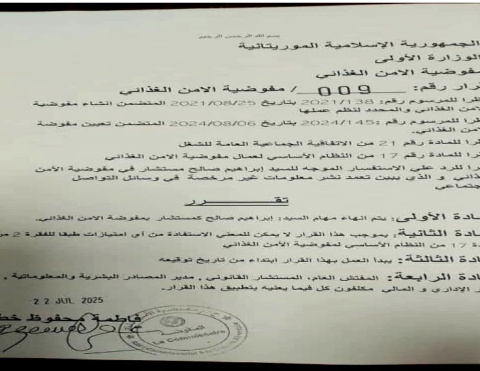 بسم الله الرحمن الرحيم
الجمهورية الإسلامية الموريتانية
الوزارة الأولى
مفوضية الأمن الغذائي
رار رقم: 009 / مفوضية الامن الغذائي
ظرا للمرسوم رقم: 2021/138 بتاريخ 2021/08/25 المتضمن انشاء مفوضية
من الغذائي والمحدد لنظم عملها
ظرا للمرسوم رقم: 2024/145 بتاريخ 2024/08/06 المتضمن تعيين مفوضة
من الغذائي.
را للمادة رقم 21 من الاتفاقية الجماعية العامة للشغل
را للمادة رقم 17 من النظام الأساسي لعمال مفوضية الامن الغذائي
را للرد علي الاستفسار الموجه للسيد إبراهيم صالح مستشار في مفوضية الامن
ذائي و الذي يبين تعمد نشر معلومات غير مرخصة في وسائل التواصل
جتماعي
تقـــــرر
ادة الأولى: يتم انهاء مهام السيد: إبراهيم صالح كمستشار بمفوضة الامن الغذائي.
ادة الثانية: بموجب هذا القرار لا يمكن للمعني الاستفادة من أي امتيازات طبقا للفقرة 2 من
دة 17 من النظام الأساسي لمفوضية الامن الغذائي
ادة الثالثة: يبدأ العمل بهذا القرار ابتداء من تاريخ توقيعه
ادة الرابعة: المفتش العام، المستشار القانوني، مدير المصادر البشرية والمعلوماتية ,
ر الإداري و المالي مكلفون كل فيما يعنيه بتطبيق هذا القرار.
22 JUL 2025
فاطمة محفوظ خط
Le Commissaire